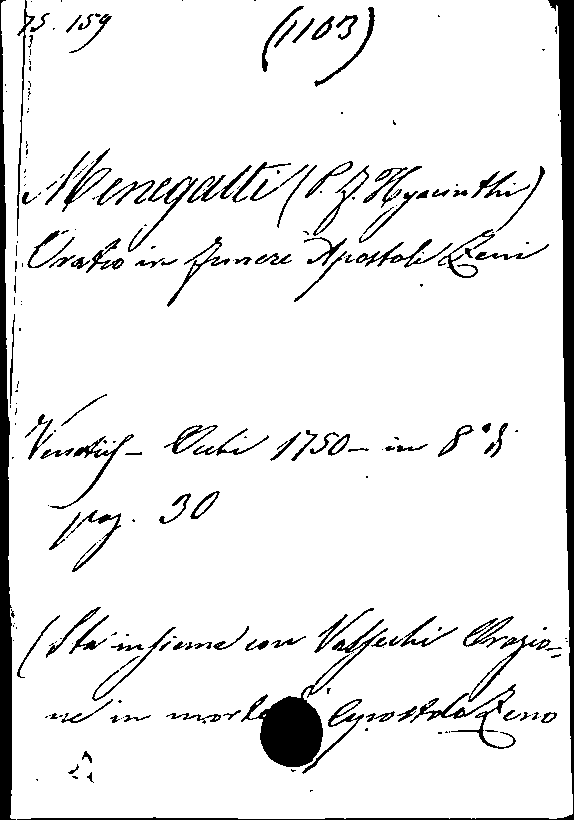 75. 159 (1103)
Menegatti (P. F. Hyacinthi)
Oratio in funere Apostoli Zeni
Venetiis - 1750 - in 8° di
pag. 30
(Sta insieme con Valsechi Orazio=
ne in morte di Apostolo Zeno